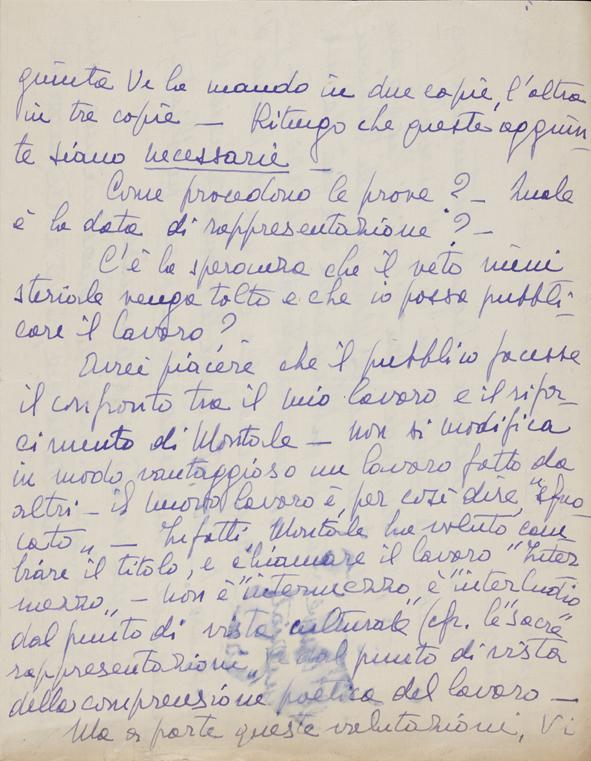 quinta Ve la mando in due copie, l'altra
in tre copie — Ritengo che queste aggiun-
te siano necessarie —
Come procedono le prove? — Quale
è la data di rappresentazione? —
C'è la speranza che il veto mini
steriale venga tolto e che io possa pubbli-
care il lavoro?
Avrei piacere che il pubblico facesse
il confronto tra il mio lavoro e il rifa-
cimento di Montale — non si modifica
in modo vantaggioso un lavoro fatto da
altri — il nuovo lavoro è, per così dire, "sfuo-
cato" — Infatti Montale ha voluto cam
biare il titolo, e chiamare il lavoro "Inter
mezzo" — non è "intermezzo", è "interludio"
dal punto di vista culturale (cfr. le "sacre
rappresentazioni") e dal punto di vista
della comprensione poetica del lavoro —
Ma a parte queste valutazioni, Vi